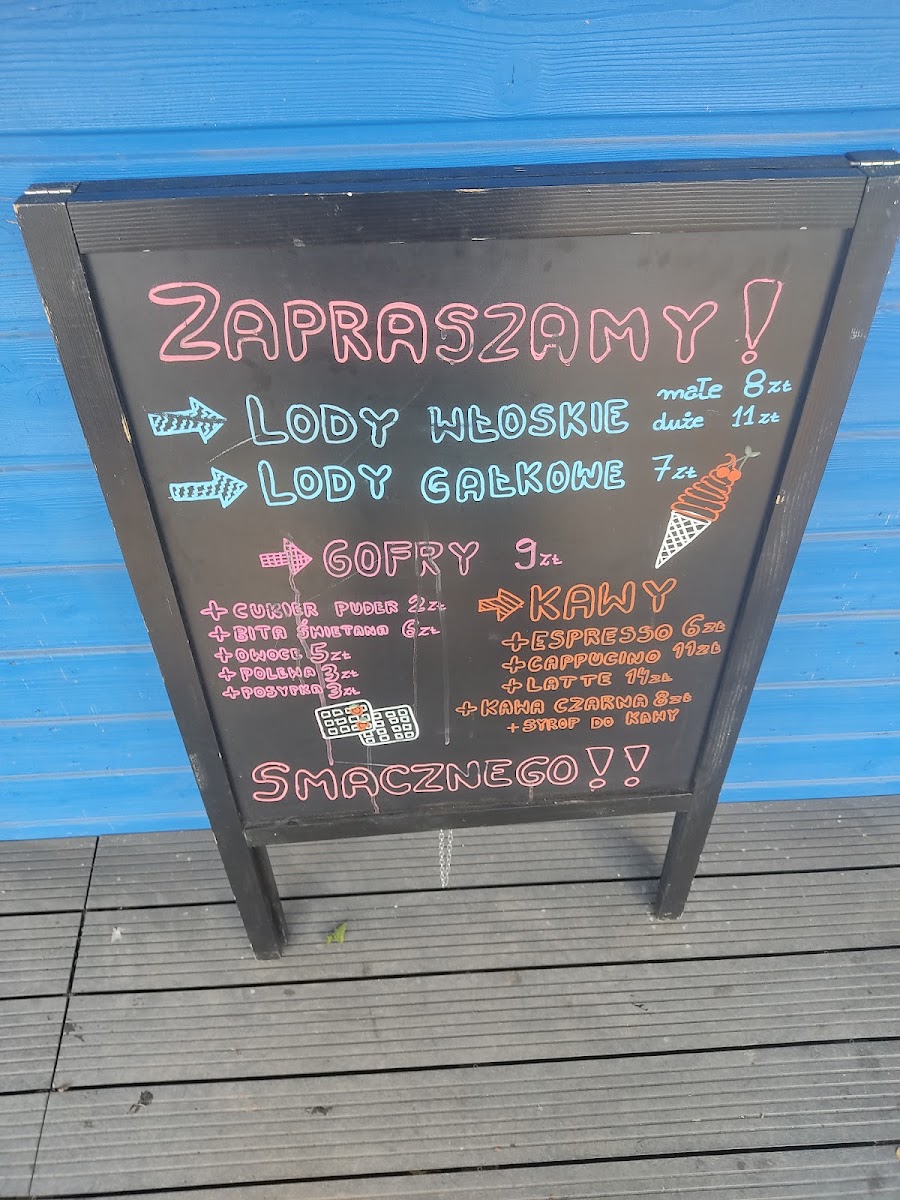 ZAPRASZAMY!
LODY WŁOSKIE małe 8zł
duże 11zł
LODY GAŁKOWE 7zł
GOFRY 9zł
+ CUKIER PUDER 2zł
+ BITA ŚMIETANA 6zł
+ OWOCE 5zł
+ POLEWA 3zł
+ POSYPKA 3zł
KAWY
+ ESPRESSO 6zł
+ CAPPUCINO 11zł
+ LATTE 14zł
+ KAWA CZARNA 8zł
+ SYROP DO KAWY
SMACZNEGO!!